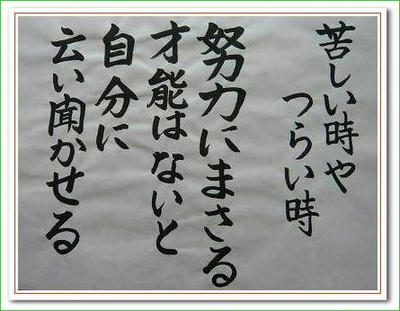 苦しい時や
つらい時
努力にまさる
才能はないと
自分に
云い聞かせる